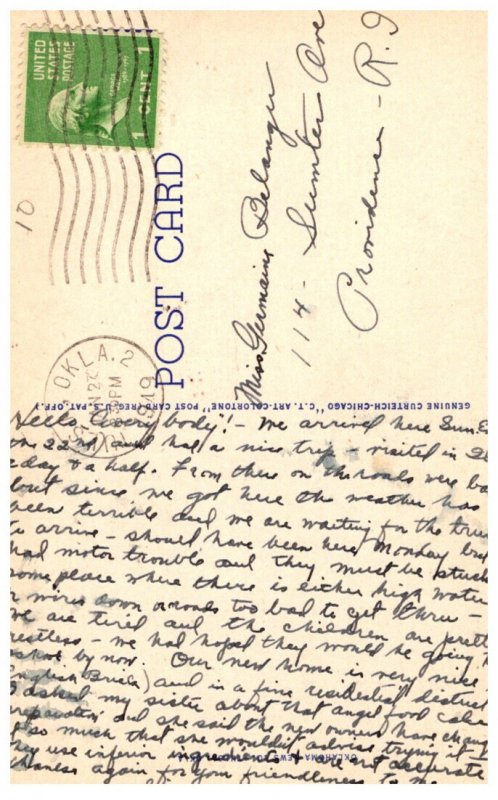 UNITED
STATES
POSTAGE
1 CENT 1
10
POST CARD
OKLA. 2
PM
1949
Miss Germaine Belanger
114 - Sumter Ave
Providence - R.I
GENUINE CURTEICH-CHICAGO "C.T. ART-COLORTONE" POST CARD (REG. U.S. PAT. OFF.)
Hello Everybody! - We arrived here Sun. E
on 22nd and had a nice trip - visited in
day & a half. From there on the roads were ba
but since we got here the weather has
been terrible and we are waiting for the truc
to arrive - should have been here Monday but
had motor trouble and they must be stuck
some place where there is either high water
or wires down or roads too bad to get thru -
we are tired and the children are pretty
restless - we had hoped they would be going to
school by now. Our new home is very nice
English Brick) and in a fine residential district
I asked my sister about that angel food cake
preparation and she said the new owners have chang
it so much that she wouldn't advise trying it -
they use inferior ingredients & are not accurate
thanks again for your friendliness to me
OKLAHOMA NEWS